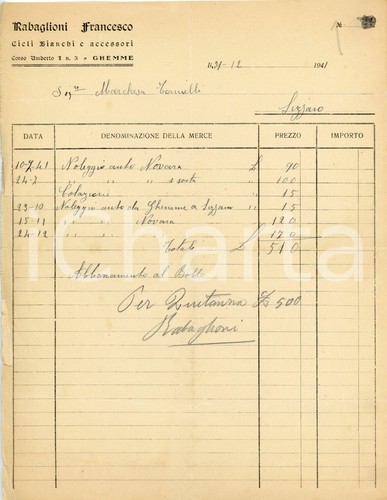 Rabaglioni Francesco
Cicli Bianchi e accessori
Corso Umberto I n. 3 - GHEMME
N.
li, 31-12 1941
Sig.ra Marchesa Tornielli
Sizzano
DATA DENOMINAZIONE DELLA MERCE PREZZO IMPORTO
10-7.41 Noleggio auto Novara £ 90
24-7 " " " sosta " 100
Colazione " 15
23-10 Noleggio auto da Ghemme a Sizzano " 15
15-11 " " Novara 120
24-12 " " " 170
Totale £ 510
Abbonamento al Bollo
Per Quitanza £ 500
Rabaglioni
iCharta